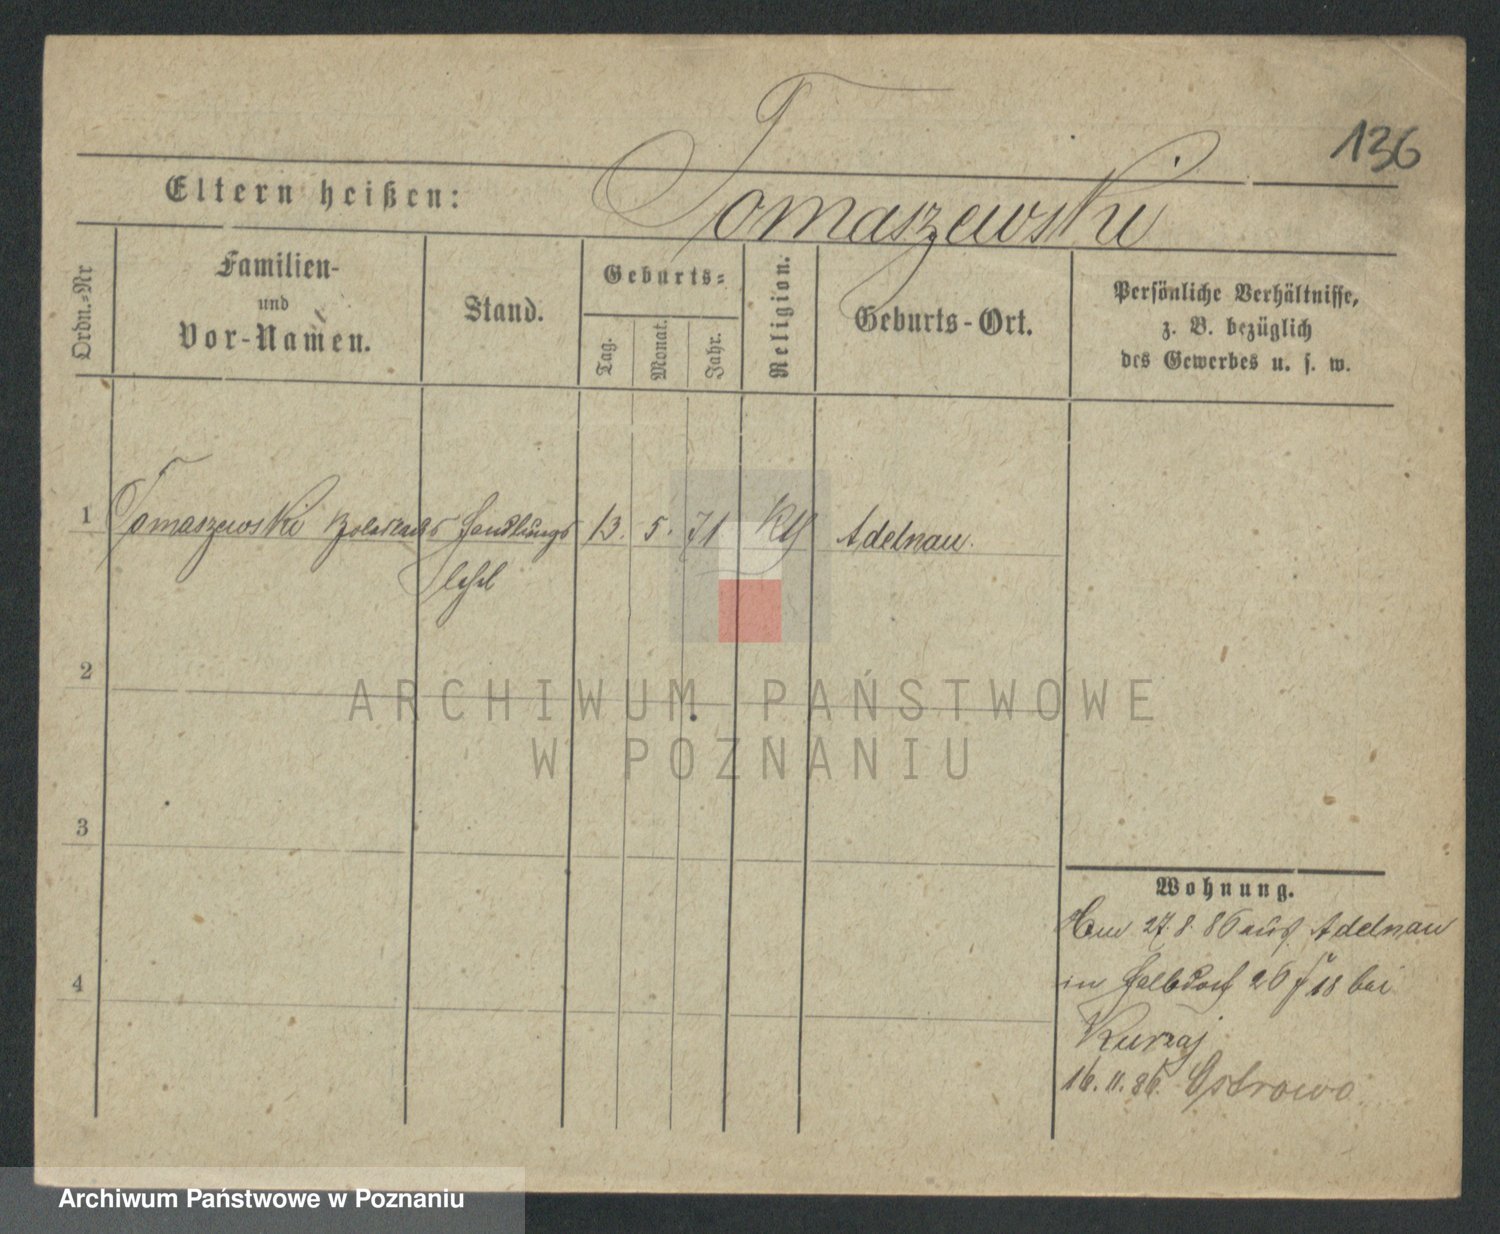 136
Eltern heißen: Tomaszewski
Ordn.=Nr
Familien-
und
Vor-Namen.
Stand.
Geburts=
Tag.
Monat.
Jahr.
Religion.
Geburts-Ort.
Persönliche Verhältnisse,
z. B. bezüglich
des Gewerbes u. s. w.
1 Tomaszewski Handlungs 13. 5. 71 Adelnau.
2
3
4
Wohnung.
27. 8. 86 aus Adelnau
in 18 bei
Kurzaj
16. 11. 86. Ostrowo
ARCHIWUM PAŃSTWOWE
W POZNANIU
Archiwum Państwowe w Poznaniu